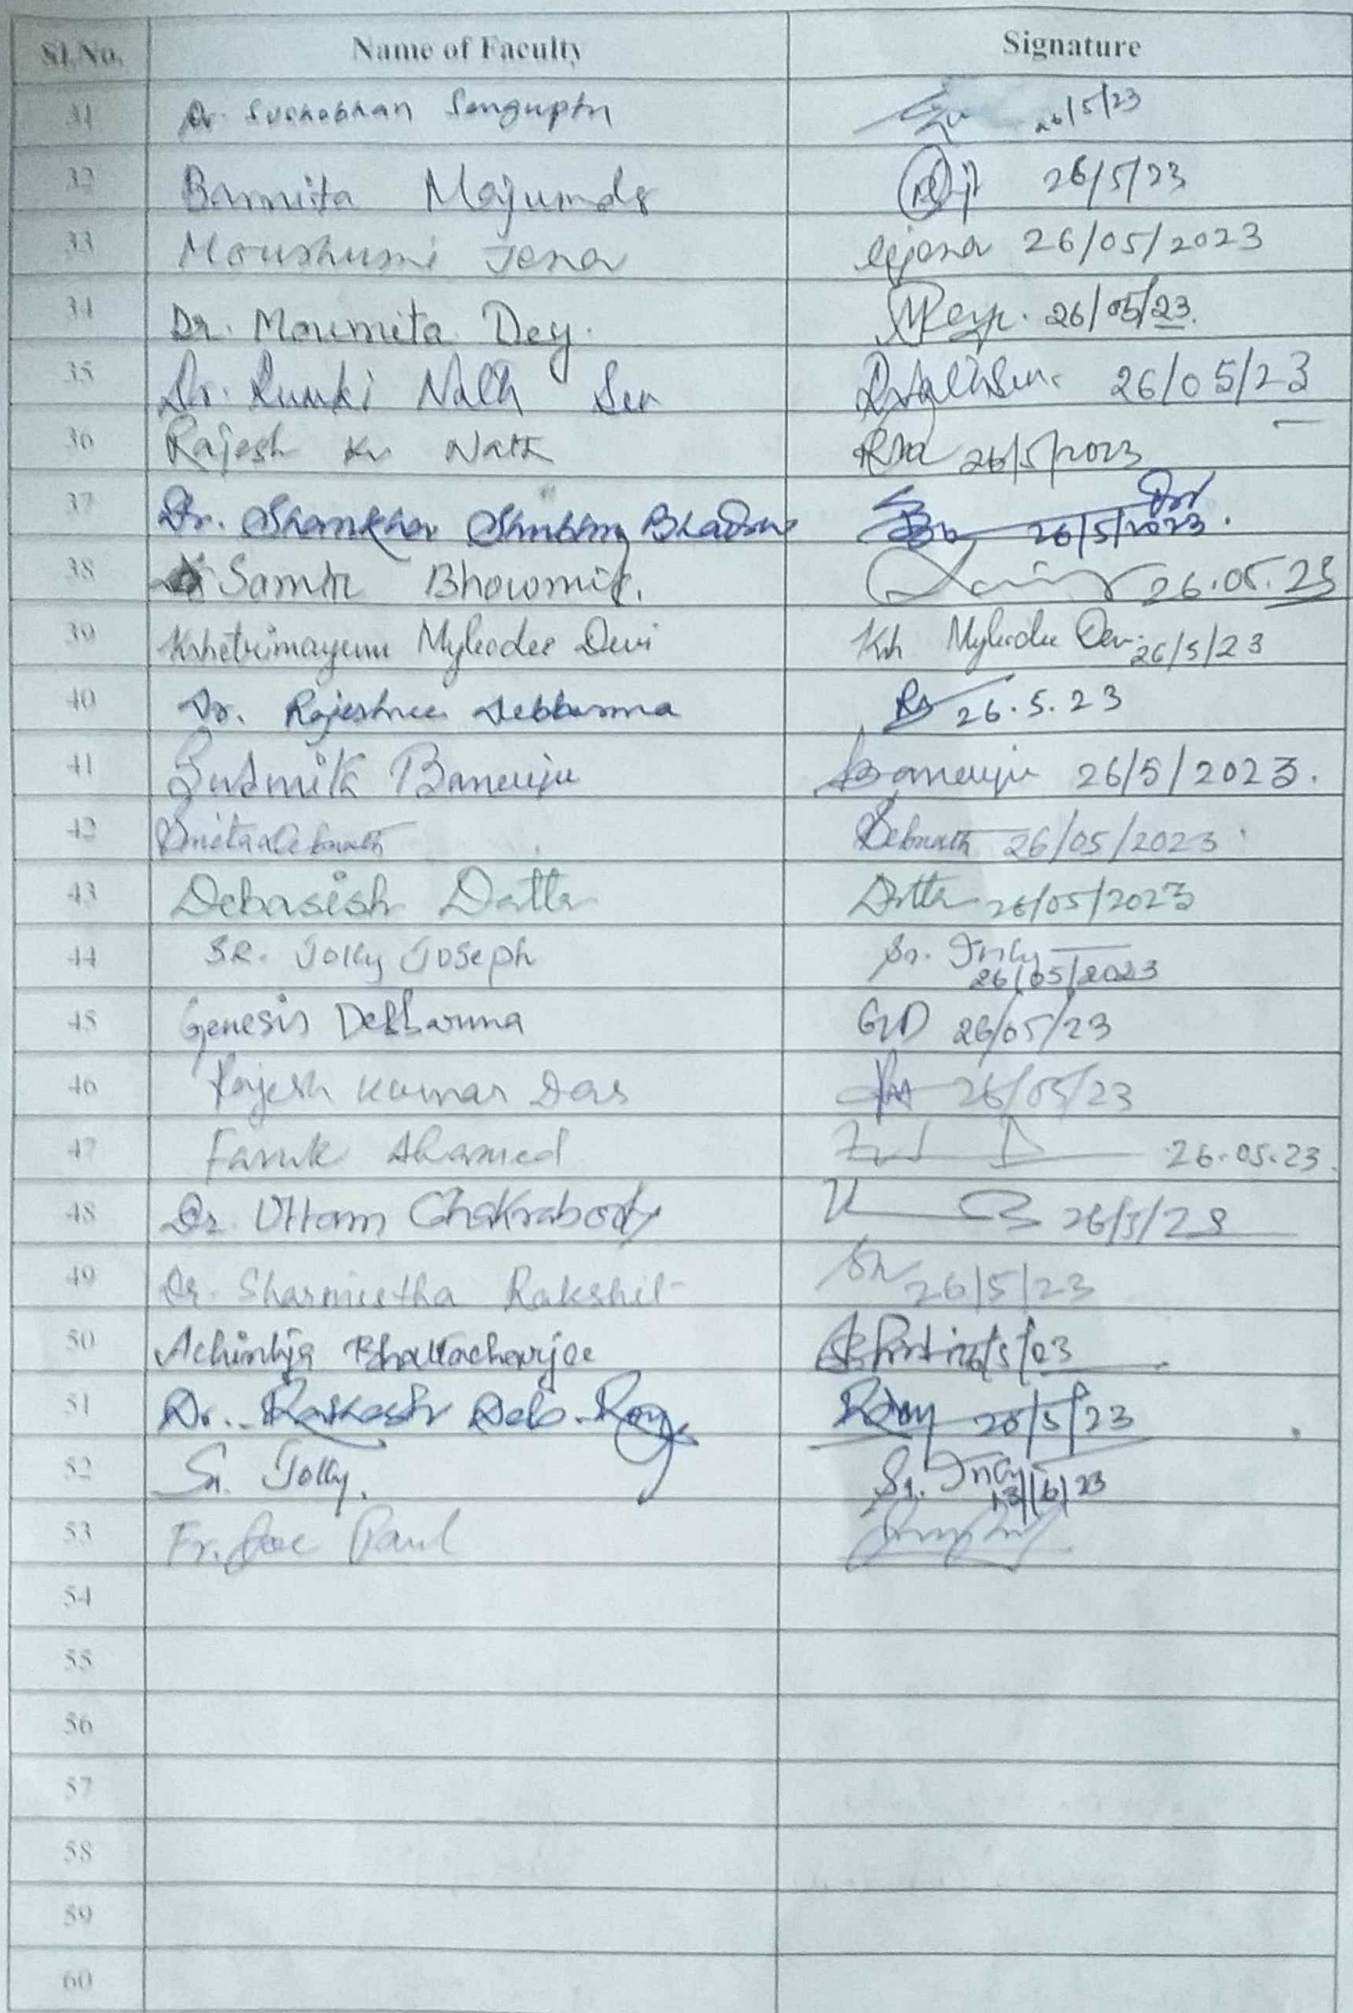 Sl.No. Name of Faculty Signature
31 Dr. Suchobhan Sengupta 26/5/23
32 Barnita Majumder 26/5/23
33 Moushumi Jena Jena 26/05/2023
34 Dr. Moumita Dey. 26/05/23.
35 Dr. Rumki Nath Sen 26/05/23
36 Rajesh Kr Nath 26/5/2023
37 Dr. 26/5/2023.
38 Bhowmik. 26.05.23
39 Kshetrimayum Myleodee Devi Ksh Myleodee Devi 26/5/23
40 Dr. Rajeshree Debbarma 26.5.23
41 Banerjee Banerjee 26/5/2023.
42 Smita Debnath Debnath 26/05/2023
43 Debasish Datta Datta 26/05/2023
44 SR. Jolly Joseph Sr. Jolly 26/05/2023
45 Genesis Debbarma GD 26/05/23
46 Rajesh Kumar Das 26/05/23
47 Faruk Ahamed 26.05.23.
48 Dr. Uttam Chakraborty 26/5/23
49 Dr. Sharmistha Rakshit 26/5/23
50 Achintya Bhattacharjee 26/5/23
51 Dr. Rakesh Deb Roy 26/5/23
52 Sr. Jolly. Sr. Jolly 13/6/23
53 Fr. Joe Paul
54
55
56
57
58
59
60